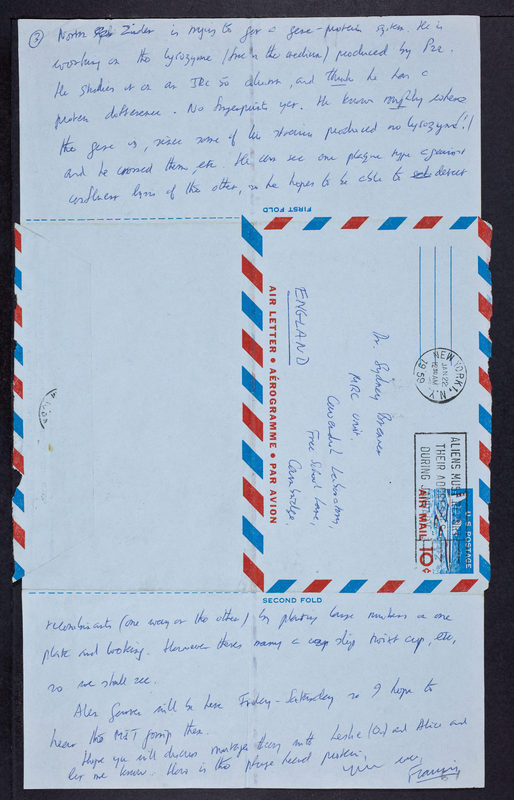 ③ Norton Zinder is trying to get a gene-protein system. He is
working on the lysozyme (free in the medium) produced by P22.
He studies it on an IRC 50 column, and think he has a
protein difference. No fingerprints yet. He knows roughly where
the gene is, since some of his strains produced no lysozyme!!
and he crossed them, etc. He can see one plaque type against
lysis of the other, so he hopes to be able to detect
FIRST FOLD
AIR LETTER • AÉROGRAMME • PAR AVION
Dr. Sydney Brenner
MRC Unit,
Cavendish Laboratory,
Free School Lane,
Cambridge.
ENGLAND
NEW YORK, N.Y.
JAN 22
1959
ALIENS MUST
THEIR ADD
DURING
U.S. POSTAGE
AIR MAIL 10¢
SECOND FOLD
recombinants (one way or the other) by plating large numbers on one
plate and looking. However there's many a slip twixt cup, etc,
so we shall see.
Alex will be here Friday - Saturday so I hope to
hear the MIT gossip then.
Hope you will discuss theory with Leslie (O) and Alice and
let me know. How is the phage head protein,
Francis